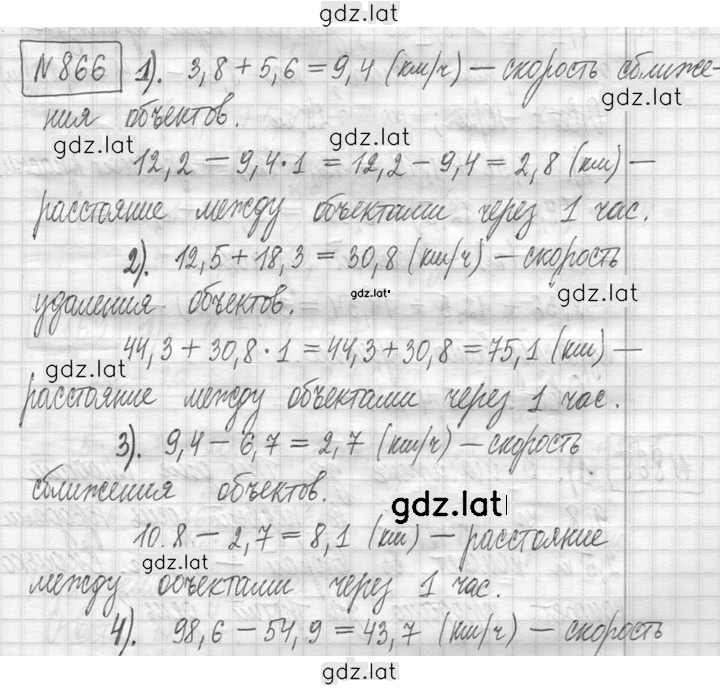 gdz.lat
N 866 1). 3,8 + 5,6 = 9,4 (км/ч) — скорость сближе-
ния объектов.
gdz.lat
gdz.lat
12,2 – 9,4·1 = 12,2 – 9,4 = 2,8 (км) —
расстояние между объектами через 1 час.
2). 12,5 + 18,3 = 30,8 (км/ч) — скорость
gdz.lat
gdz.lat
удаления объектов.
44,3 + 30,8 · 1 = 44,3 + 30,8 = 75,1 (км) —
gdz.lat
расстояние между объектами через 1 час.
3). 9,4 – 6,7 = 2,7 (км/ч) — скорость
сближения объектов.
gdz.lat
10.8 – 2,7 = 8,1 (км) — расстояние
gdz.lat
между объектами через 1 час.
4). 98,6 – 54,9 = 43,7 (км/ч) — скорость
gdz.lat